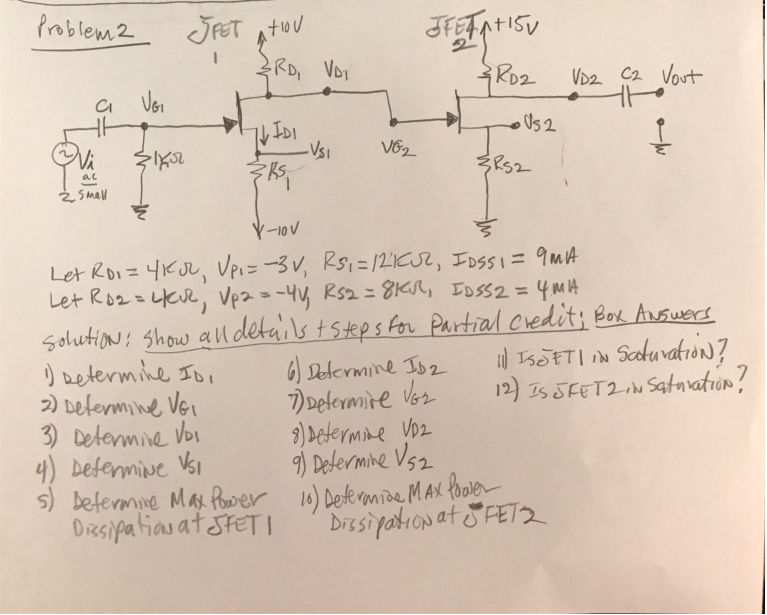 Problem 2
JFET 1
+10V
JFET 2
+15V
RD1
VD1
RD2
VD2
C2
Vout
C1
VG1
ID1
VS1
VG2
VS2
Vi
ac
small
1KΩ
RS1
RS2
-10V
Let RD1 = 4KΩ, VP1 = -3V, RS1 = 12KΩ, IDSS1 = 9mA
Let RD2 = 4KΩ, VP2 = -4V, RS2 = 8KΩ, IDSS2 = 4mA
Solution: Show all details + steps for Partial Credit; Box Answers
1) Determine ID1
2) Determine VG1
3) Determine VD1
4) Determine VS1
5) Determine Max Power
Dissipation at JFET1
6) Determine ID2
7) Determine VG2
8) Determine VD2
9) Determine VS2
10) Determine MAX Power
Dissipation at JFET2
11) Is JFET1 IN Saturation?
12) Is JFET2 in Saturation?